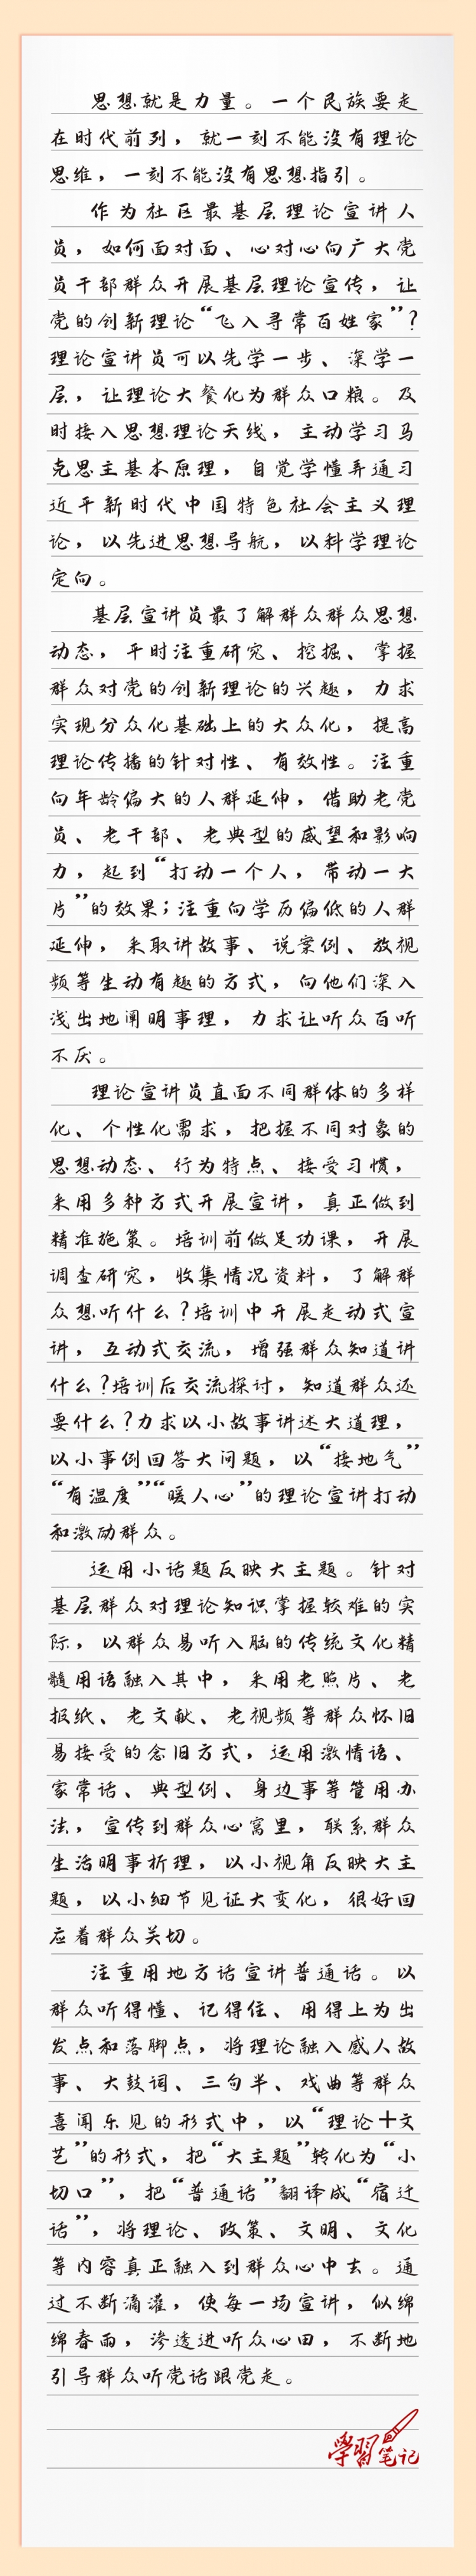 思想就是力量。一个民族要走
在时代前列，就一刻不能没有理论
思维，一刻不能没有思想指引。
作为社区最基层理论宣讲人
员，如何面对面、心对心向广大党
员干部群众开展基层理论宣传，让
党的创新理论“飞入寻常百姓家”？
理论宣讲员可以先学一步、深学一
层，让理论大餐化为群众口粮。及
时接入思想理论天线，主动学习马
克思主基本原理，自觉学懂弄通习
近平新时代中国特色社会主义理
论，以先进思想导航，以科学理论
定向。
基层宣讲员最了解群众群众思想
动态，平时注重研究、挖掘、掌握
群众对党的创新理论的兴趣，力求
实现分众化基础上的大众化，提高
理论传播的针对性、有效性。注重
向年龄偏大的人群延伸，借助老党
员、老干部、老典型的威望和影响
力，起到“打动一个人，带动一大
片”的效果；注重向学历偏低的人群
延伸，采取讲故事、说案例、放视
频等生动有趣的方式，向他们深入
浅出地阐明事理，力求让听众百听
不厌。
理论宣讲员直面不同群体的多样
化、个性化需求，把握不同对象的
思想动态、行为特点、接受习惯，
采用多种方式开展宣讲，真正做到
精准施策。培训前做足功课，开展
调查研究，收集情况资料，了解群
众想听什么？培训中开展走动式宣
讲，互动式交流，增强群众知道讲
什么？培训后交流探讨，知道群众还
要什么？力求以小故事讲述大道理，
以小事例回答大问题，以“接地气”
“有温度”“暖人心”的理论宣讲打动
和激励群众。
运用小话题反映大主题。针对
基层群众对理论知识掌握较难的实
际，以群众易听入脑的传统文化精
髓用语融入其中，采用老照片、老
报纸、老文献、老视频等群众怀旧
易接受的念旧方式，运用激情语、
家常话、典型例、身边事等管用办
法，宣传到群众心窝里，联系群众
生活明事析理，以小视角反映大主
题，以小细节见证大变化，很好回
应着群众关切。
注重用地方话宣讲普通话。以
群众听得懂、记得住、用得上为出
发点和落脚点，将理论融入感人故
事、大鼓词、三句半、戏曲等群众
喜闻乐见的形式中，以“理论＋文
艺”的形式，把“大主题”转化为“小
切口”，把“普通话”翻译成“宿迁
话”，将理论、政策、文明、文化
等内容真正融入到群众心中去。通
过不断滴灌，使每一场宣讲，似绵
绵春雨，渗透进听众心田，不断地
引导群众听党话跟党走。
學習笔记